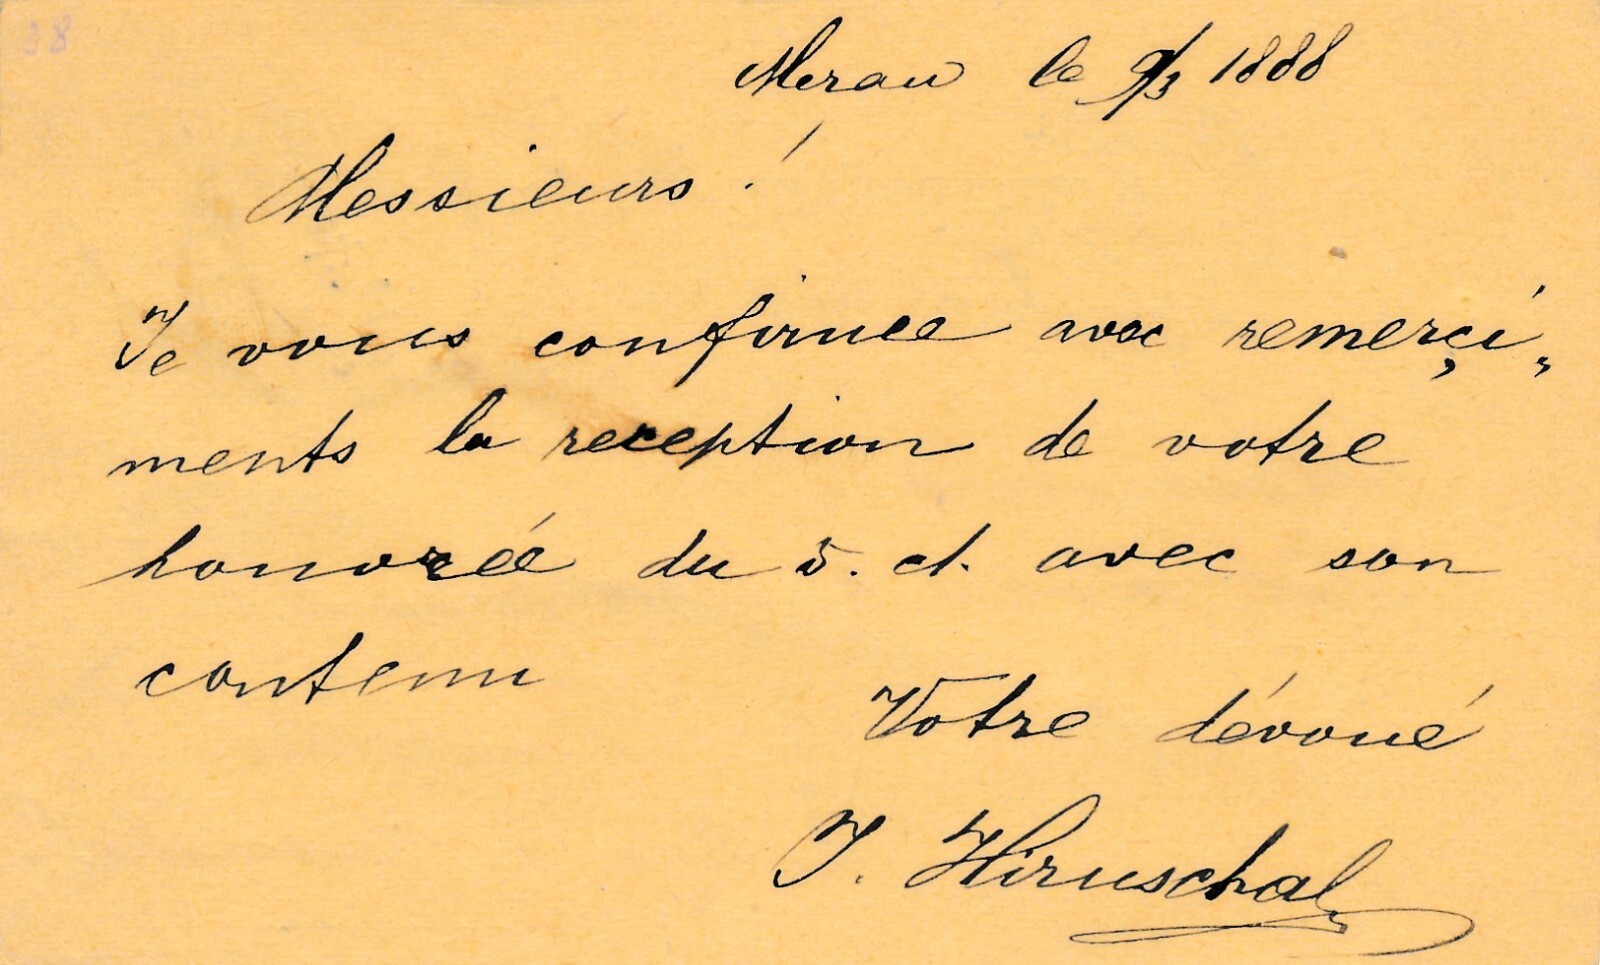 Meran le 9/3 1888
Messieurs!
Je vous confirme avec remerçi„
ments la reception de votre
honorée du 5. ct. avec son
contenu
Votre dévoué
J. Hiruschal